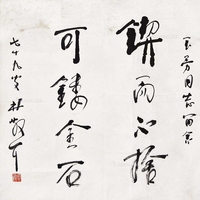 玉芳同志留念
锲而不捨
可镂金石
七十九叟林散耳